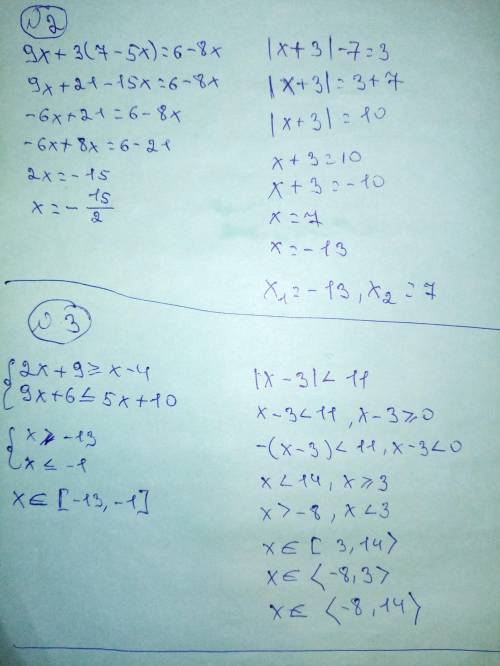 №2
9x+3(7-5x)=6-8x
9x+21-15x=6-8x
-6x+21=6-8x
-6x+8x=6-21
2x=-15
x=-15/2
|x+3|-7=3
|x+3|=3+7
|x+3|=10
x+3=10
x+3=-10
x=7
x=-13
x₁=-13, x₂=7
№3
{2x+9≥x-4
9x+6≤5x+10
{x≥-13
x≤-1
x∈[-13,-1]
|x-3|<11
x-3<11, x-3≥0
-(x-3)<11, x-3<0
x<14, x≥3
x>-8, x<3
x∈[3,14⟩
x∈⟨-8,3⟩
x∈⟨-8,14⟩